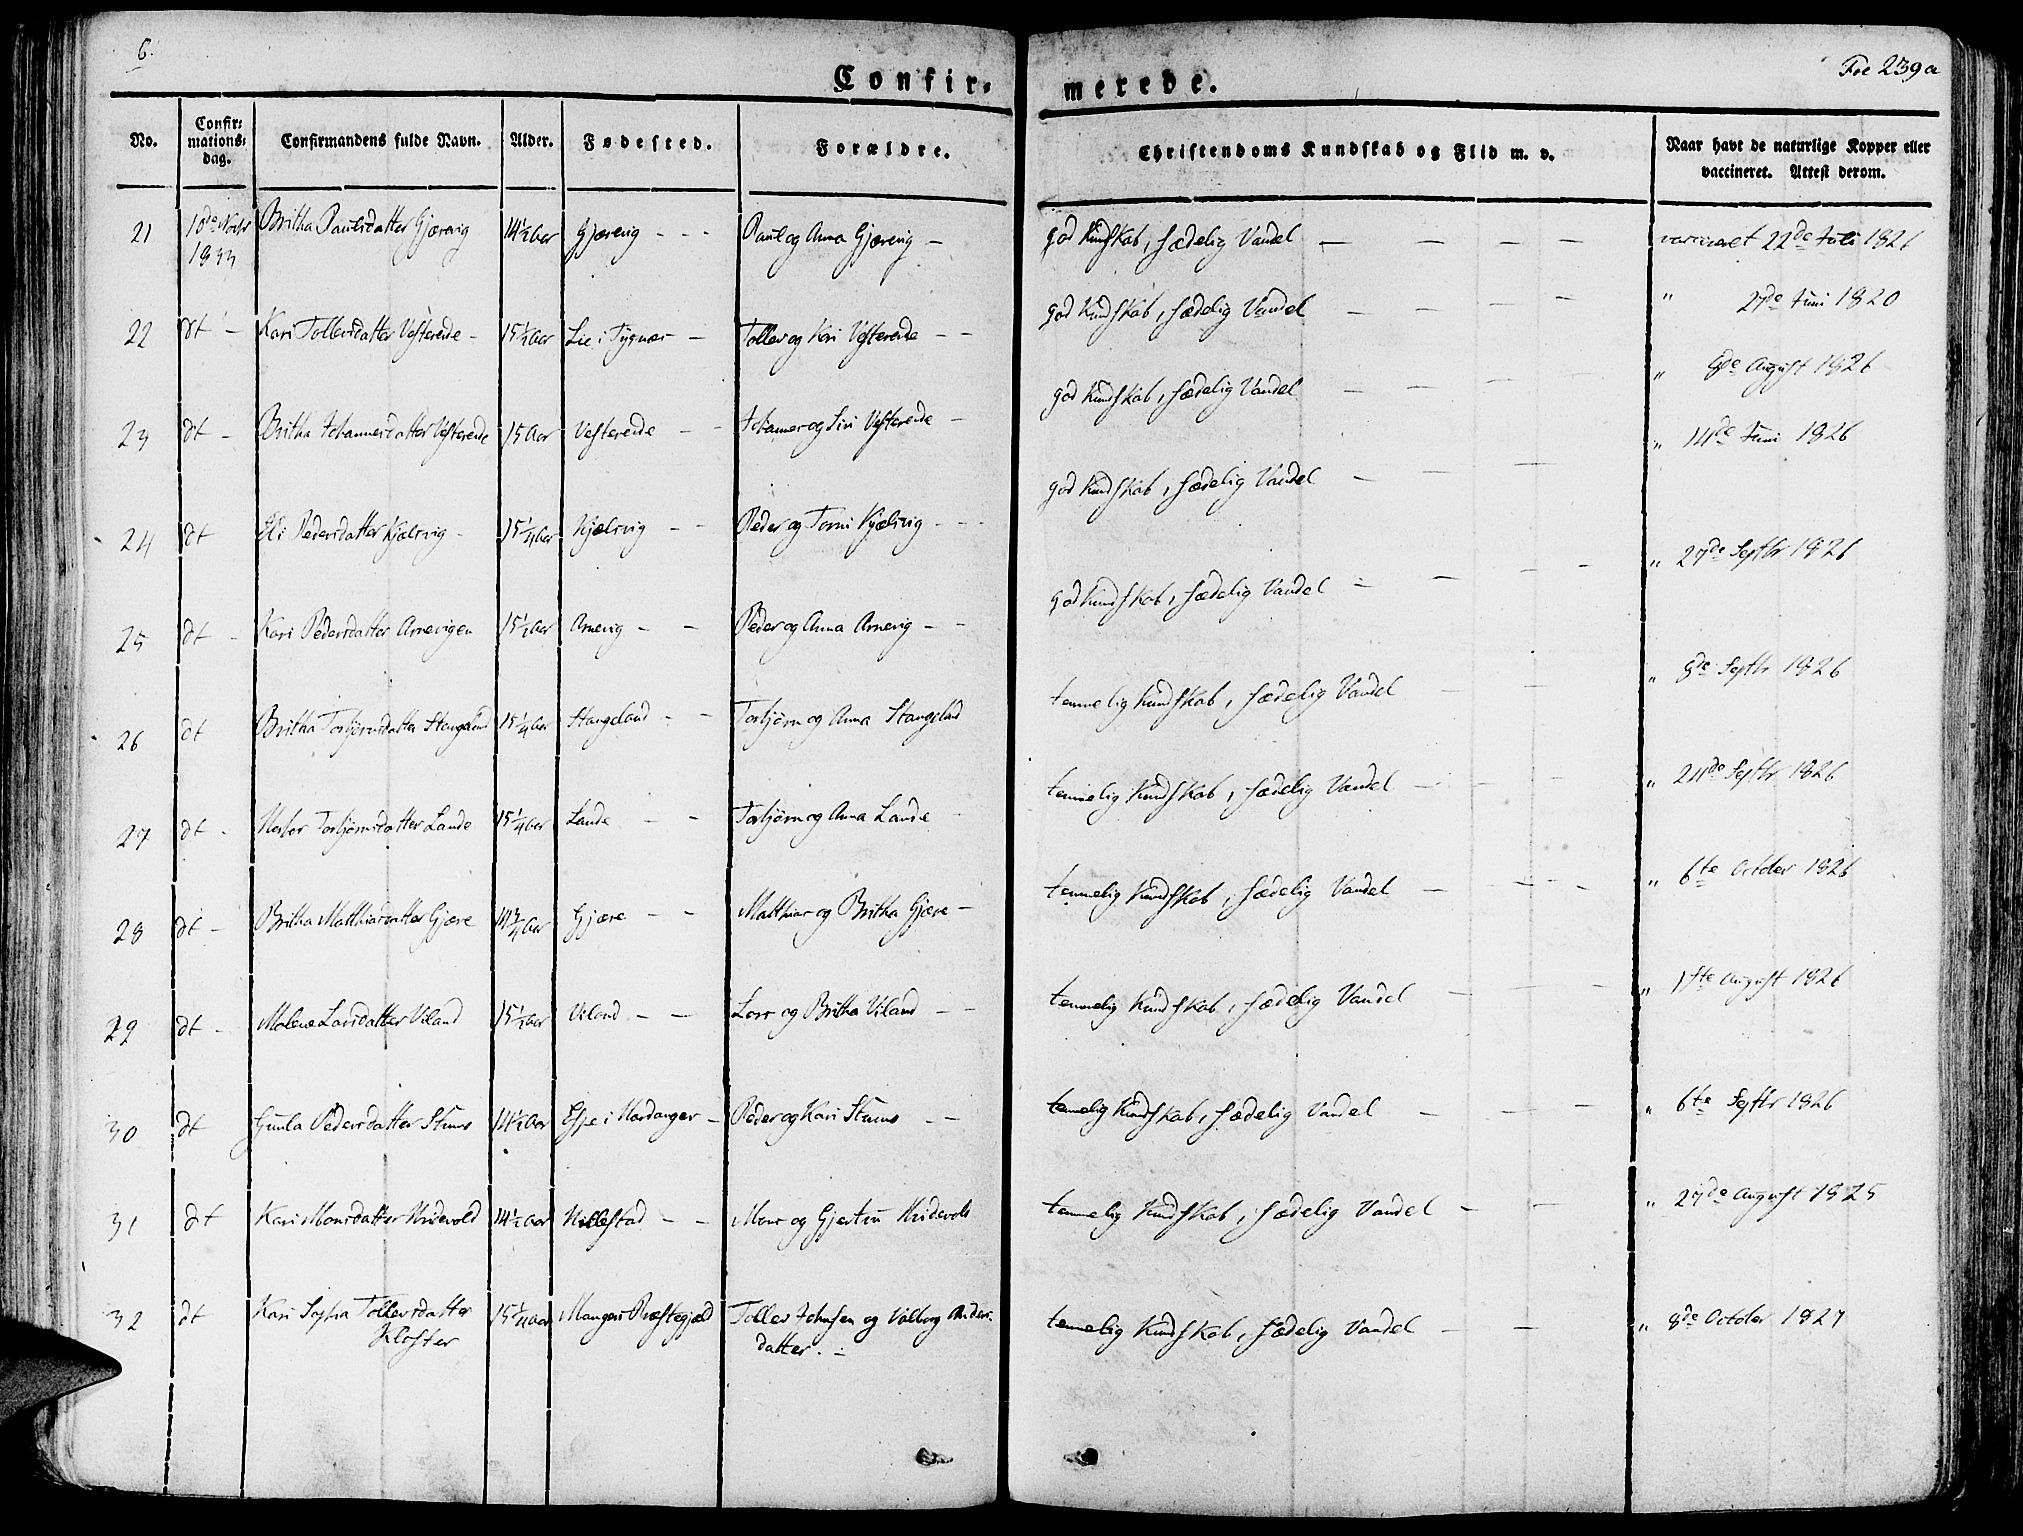 6.
Fol 239a
Confir-
merede.
No.
Confir-
mations-
dag.
Confirmandens fulde Navn.
Alder.
Fødested.
Forældre.
Christendoms Kundskab og Flid m. v.
Naar havt de naturlige Kopper eller
vaccineret. Attest derom.
21 10de Novbr Britha Paulsdatter Gjærevig 14½ Aar Gjærevig - - - Paul og Anna Gjærevig - god Kundskab, sædelig Vandel - - - - vaccineret 22de Juli 1826
1833
22 dt - Kari Tollevsdatter Vestereide - 15½ Aar Lie i Tysnæs - Tollev og Kari Vestereide - - god Kundskab, sædelig Vandel - - - - " 27de Juni 1820
23 dt - Britha Johannesdatter Vestereide 15 Aar Vestereide - - Johannes og Siri Vestereide - god Kundskab, sædelig Vandel - - - - " 8de August 1826
24 dt Eli Pedersdatter Kjælevig - 15¼ Aar Kjælevig - - Peder og Torni Kjælevig - - - god Kundskab, sædelig Vandel - - - " 14de Juni 1826
25 dt - Kari Pedersdatter Arnevigen 15½ Aar Arnevig - - Peder og Anna Arnevig - - god Kundskab, sædelig Vandel - - - - " 27de Septbr 1826
26 dt Britha Torbjørnsdatter Stangeland 15¼ Aar Stangeland - - Torbjørn og Anna Stangeland temmelig Kundskab, sædelig Vandel - - " 8de Septbr 1826
27 dt - Torbjørnsdatter Lande 15¼ Aar Lande - - Torbjørn og Anna Lande - temmelig Kundskab, sædelig Vandel - - - " 24de Septbr 1826
28 dt - Britha Matthiasdatter Gjære 14¾ Aar Gjære - - Matthias og Britha Gjære - temmelig Kundskab, sædelig Vandel - - - - " 6te October 1826
29 dt - Malene Larsdatter Viland 15½ Aar Viland - - Lars og Britha Viland - - temmelig Kundskab, sædelig Vandel - - - " 1ste August 1826
30 dt Gunla Pedersdatter 14½ Aar i Hardanger - Peder og Kari - - temmelig Kundskab, sædelig Vandel - - - " 6te Septbr 1826
31 dt Kari Monsdatter Hridevold 14½ Aar Hillestad - - Mons og Gjertru Hridevold temmelig Kundskab, sædelig Vandel - - " 27de August 1825
32 dt Kari Sophia Tollevsdatter 15¼ Aar Mangers Præstegjæld Tollev Johnsen og Valborg Anders- temmelig Kundskab, sædelig Vandel - - " 8de October 1827
Kloster datter. -